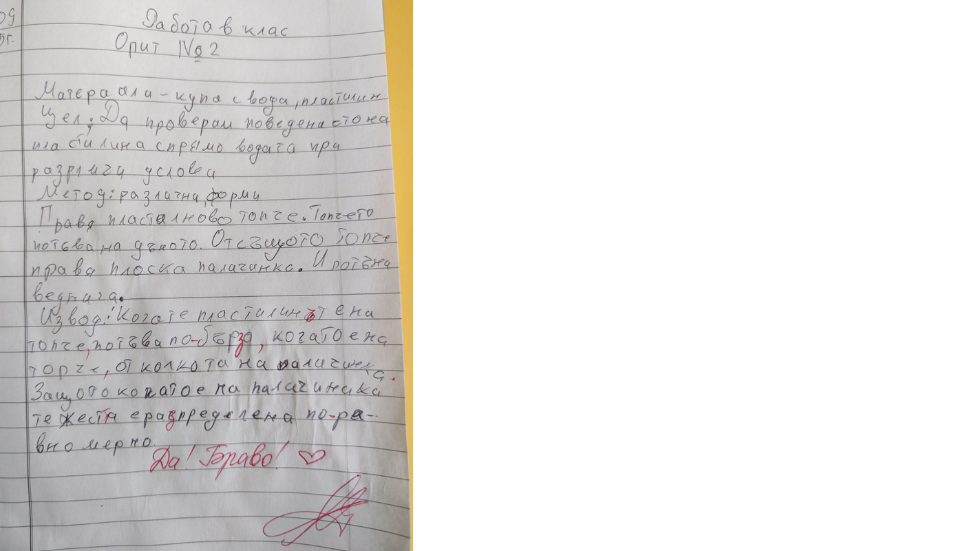 09
Работа в клас
Опит №2
Матераали - купа с вода, пластилин
Цел: Да проверим поведенастона
пластилина спрямо водата при
разлиги услова
Метод: различни форми
Правя пласталново топче. Топчето
потъва на дъното. Отсъщото топче
правя плоска палачинка. И потъна
веднага.
Извод: Когате пластилинът е на
топче, потъва по-бързо, когатоена
топче, от колкота на палачинка.
Защото когатое на палачинака
тежестта е разпределена по-ра-
вномерно
Да! Браво! ♡